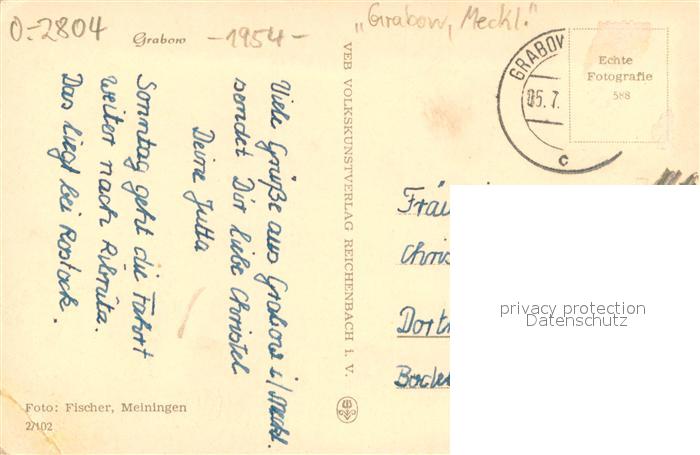 0-2804
Grabow
-1954-
„Grabow, Meckl."
GRABOW
05.7.
c
Echte
Fotografie
588
Viele Grüße aus Grabow i/Meckl.
sendet Dir liebe Christel
Deine Jutta
Sonntag geht die Fahrt
weiter nach
Das liegt bei Rostock.
VEB VOLKSKUNSTVERLAG REICHENBACH i. V.
Fräu
Chris
Dort
privacy protection
Datenschutz
Foto: Fischer, Meiningen
2/102